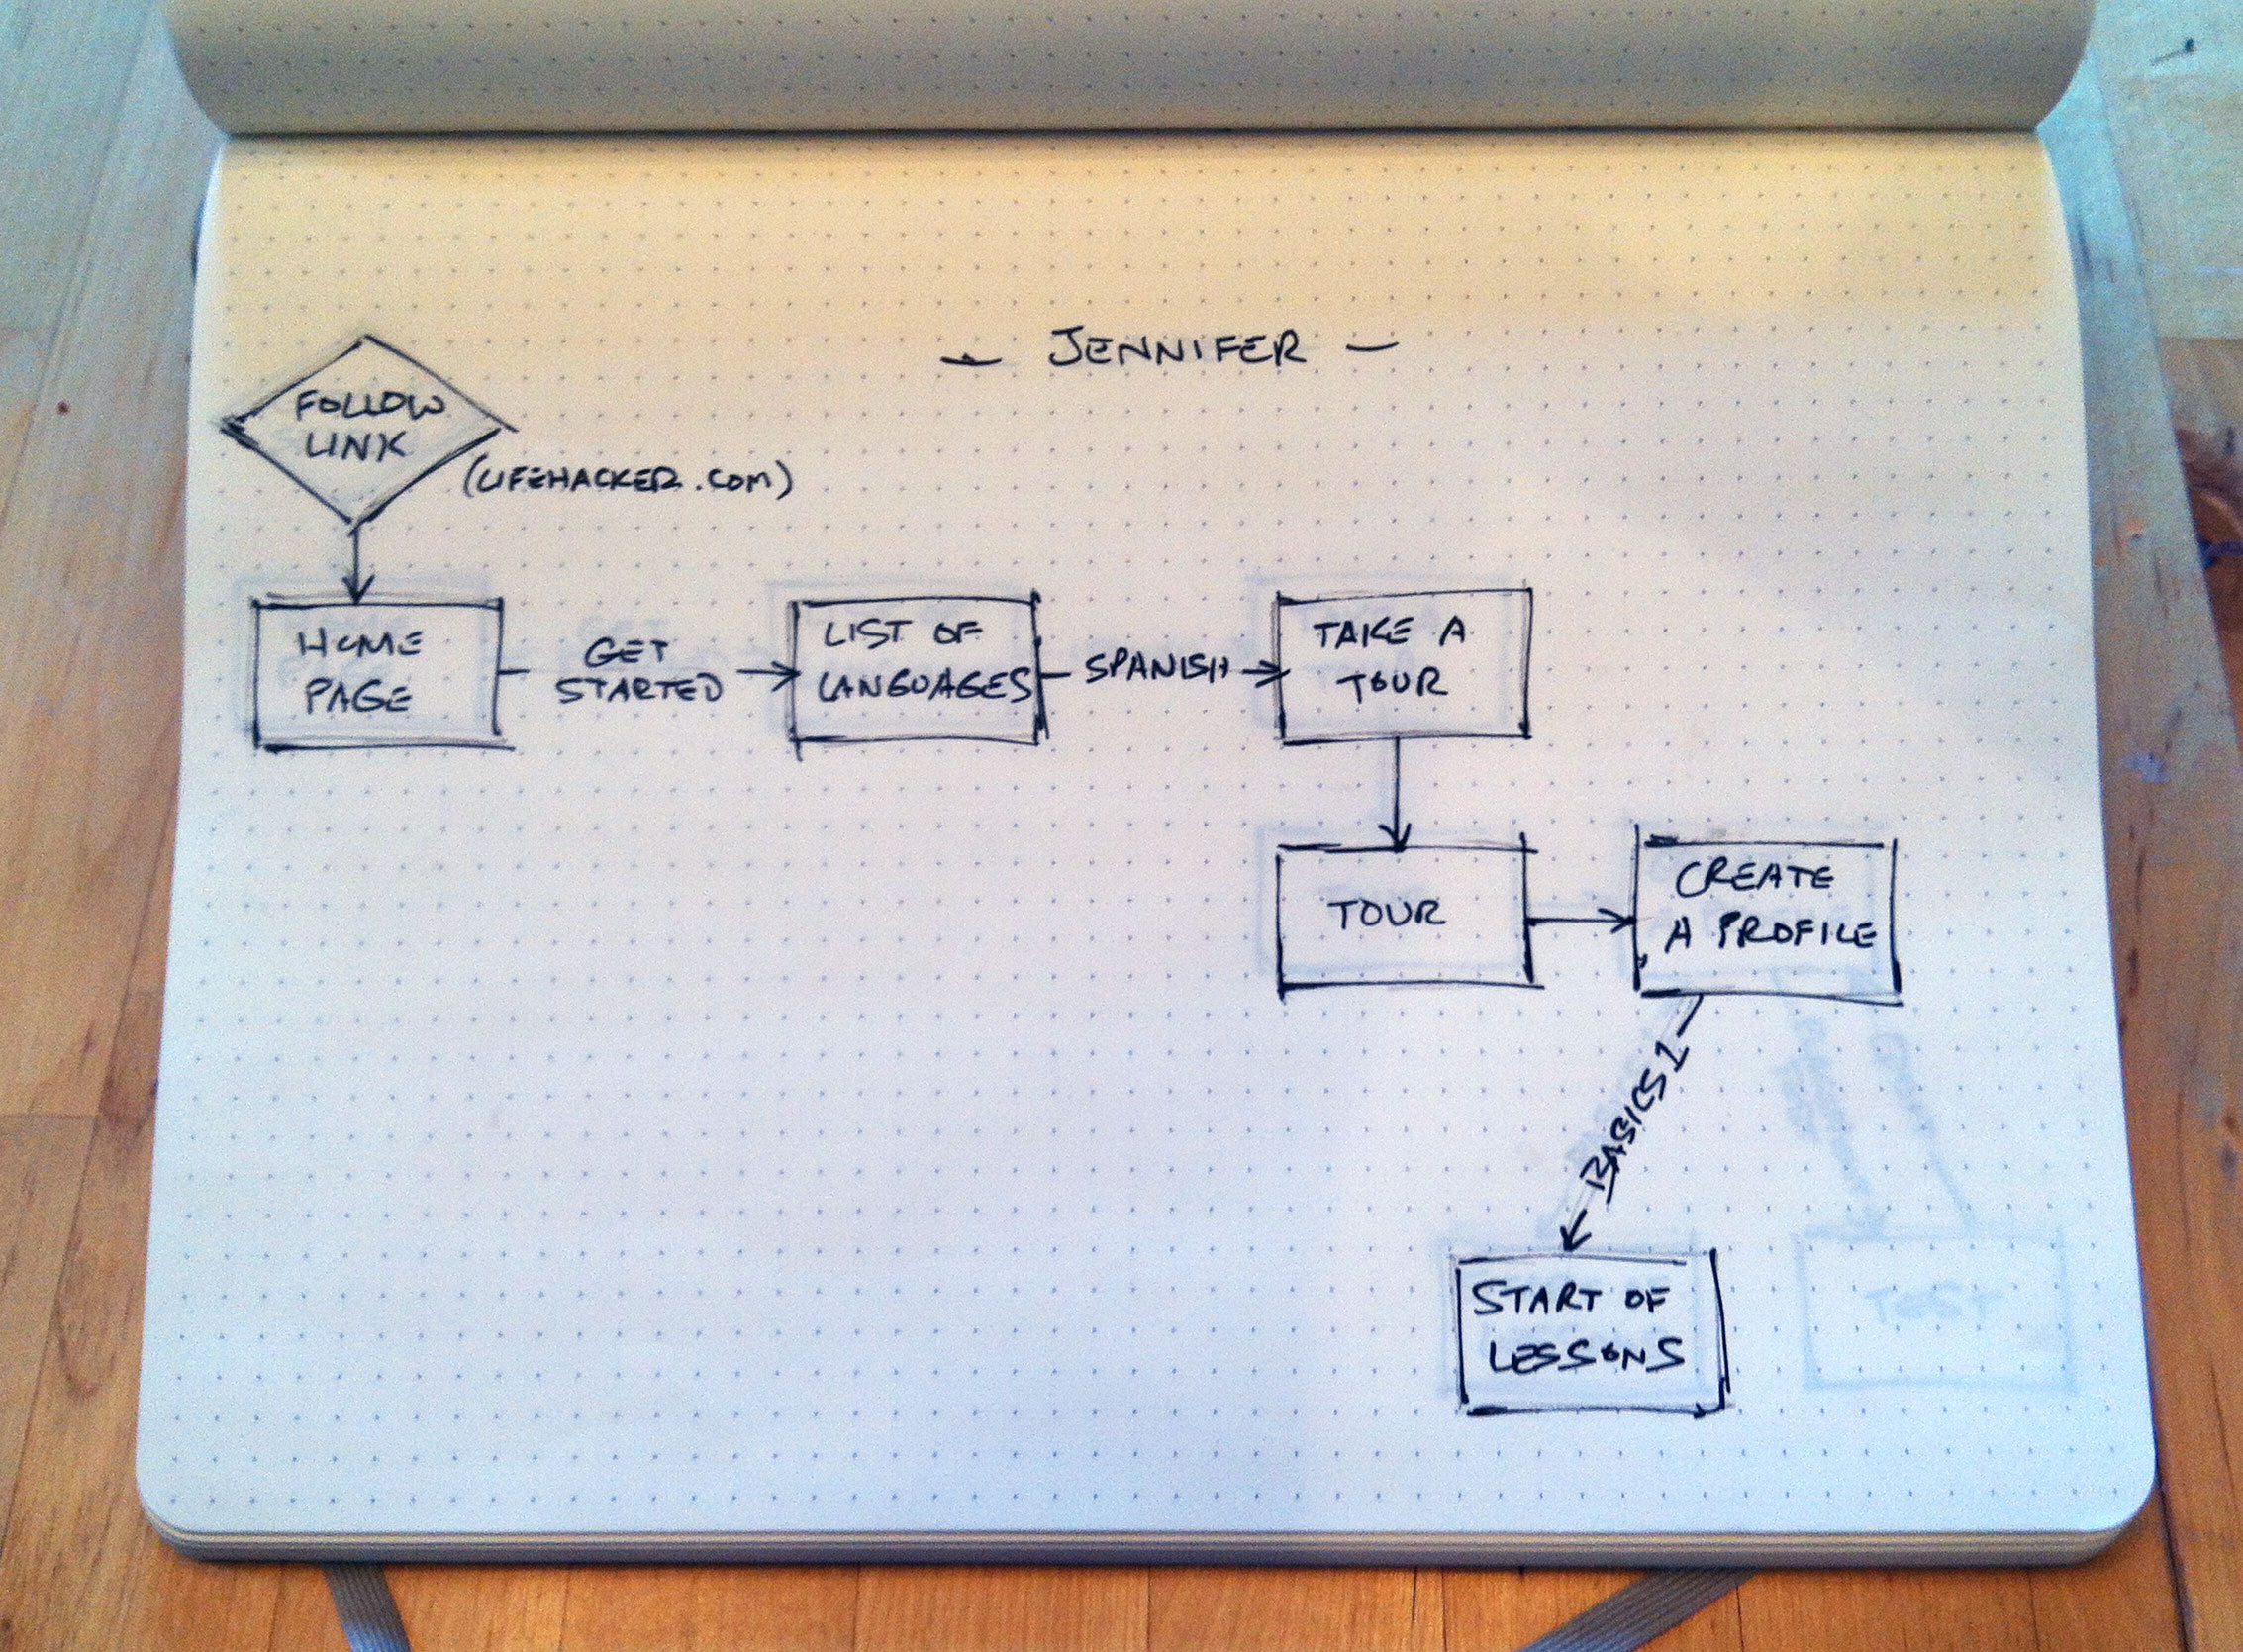 - JENNIFER -
FOLLOW
LINK
(LIFEHACKER.COM)
HOME
PAGE
GET
STARTED
LIST OF
LANGUAGES
SPANISH
TAKE A
TOUR
TOUR
CREATE
A PROFILE
BASICS 1
START OF
LESSONS